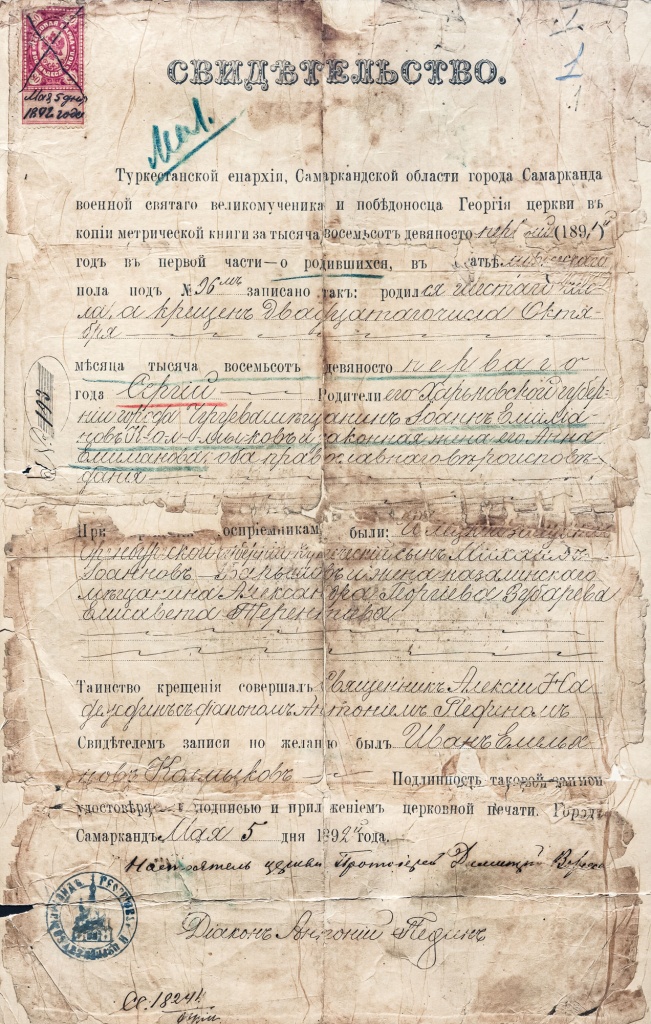 1
1
1
Мая 5 дня
1892 года
СВИДѢТЕЛЬСТВО.
Туркестанской епархіи, Самаркандской области города Самарканда
военной святаго великомученика и побѣдоносца Георгія церкви въ
копіи метрической книги за тысяча восемьсот девяносто (189
годъ въ первой части—о родившихся, въ статьѣ мужескаго
пола подъ № 96мъ записано такъ: родился шестаго чис-
ла, а крещенъ двадцатаго числа Октя-
бря
мѣсяца тысяча восемьсот девяносто перваго
года Сергій Родители его Харьковской губер-
ніи города Чугуева мѣщанинъ Іоаннъ Емиліа
новъ Колмыковъ и законная жена его Анна
оба православнаго вѣроисповѣ-
данія
№ 193
При воспріемниками были:
сынъ Михаилъ
Іоанновъ и жена казалинскаго
мѣщанина Александра Георгіева Зубарева
Елисавета Терентьева
Таинство крещенія совершалъ Священникъ Алексій На
съ діакономъ Антоніемъ Пединомъ
Свидѣтелемъ записи по желанію былъ Иванъ Емелья
новъ Колмыковъ Подлинность таковой записи
удостовѣря подписью и приложеніемъ церковной печати. Городъ
Самаркандъ Мая 5 дня 1892 года.
Настоятель церкви Протоіерей Димитрій
Діаконъ Антоній Пединъ
Ст. 18244